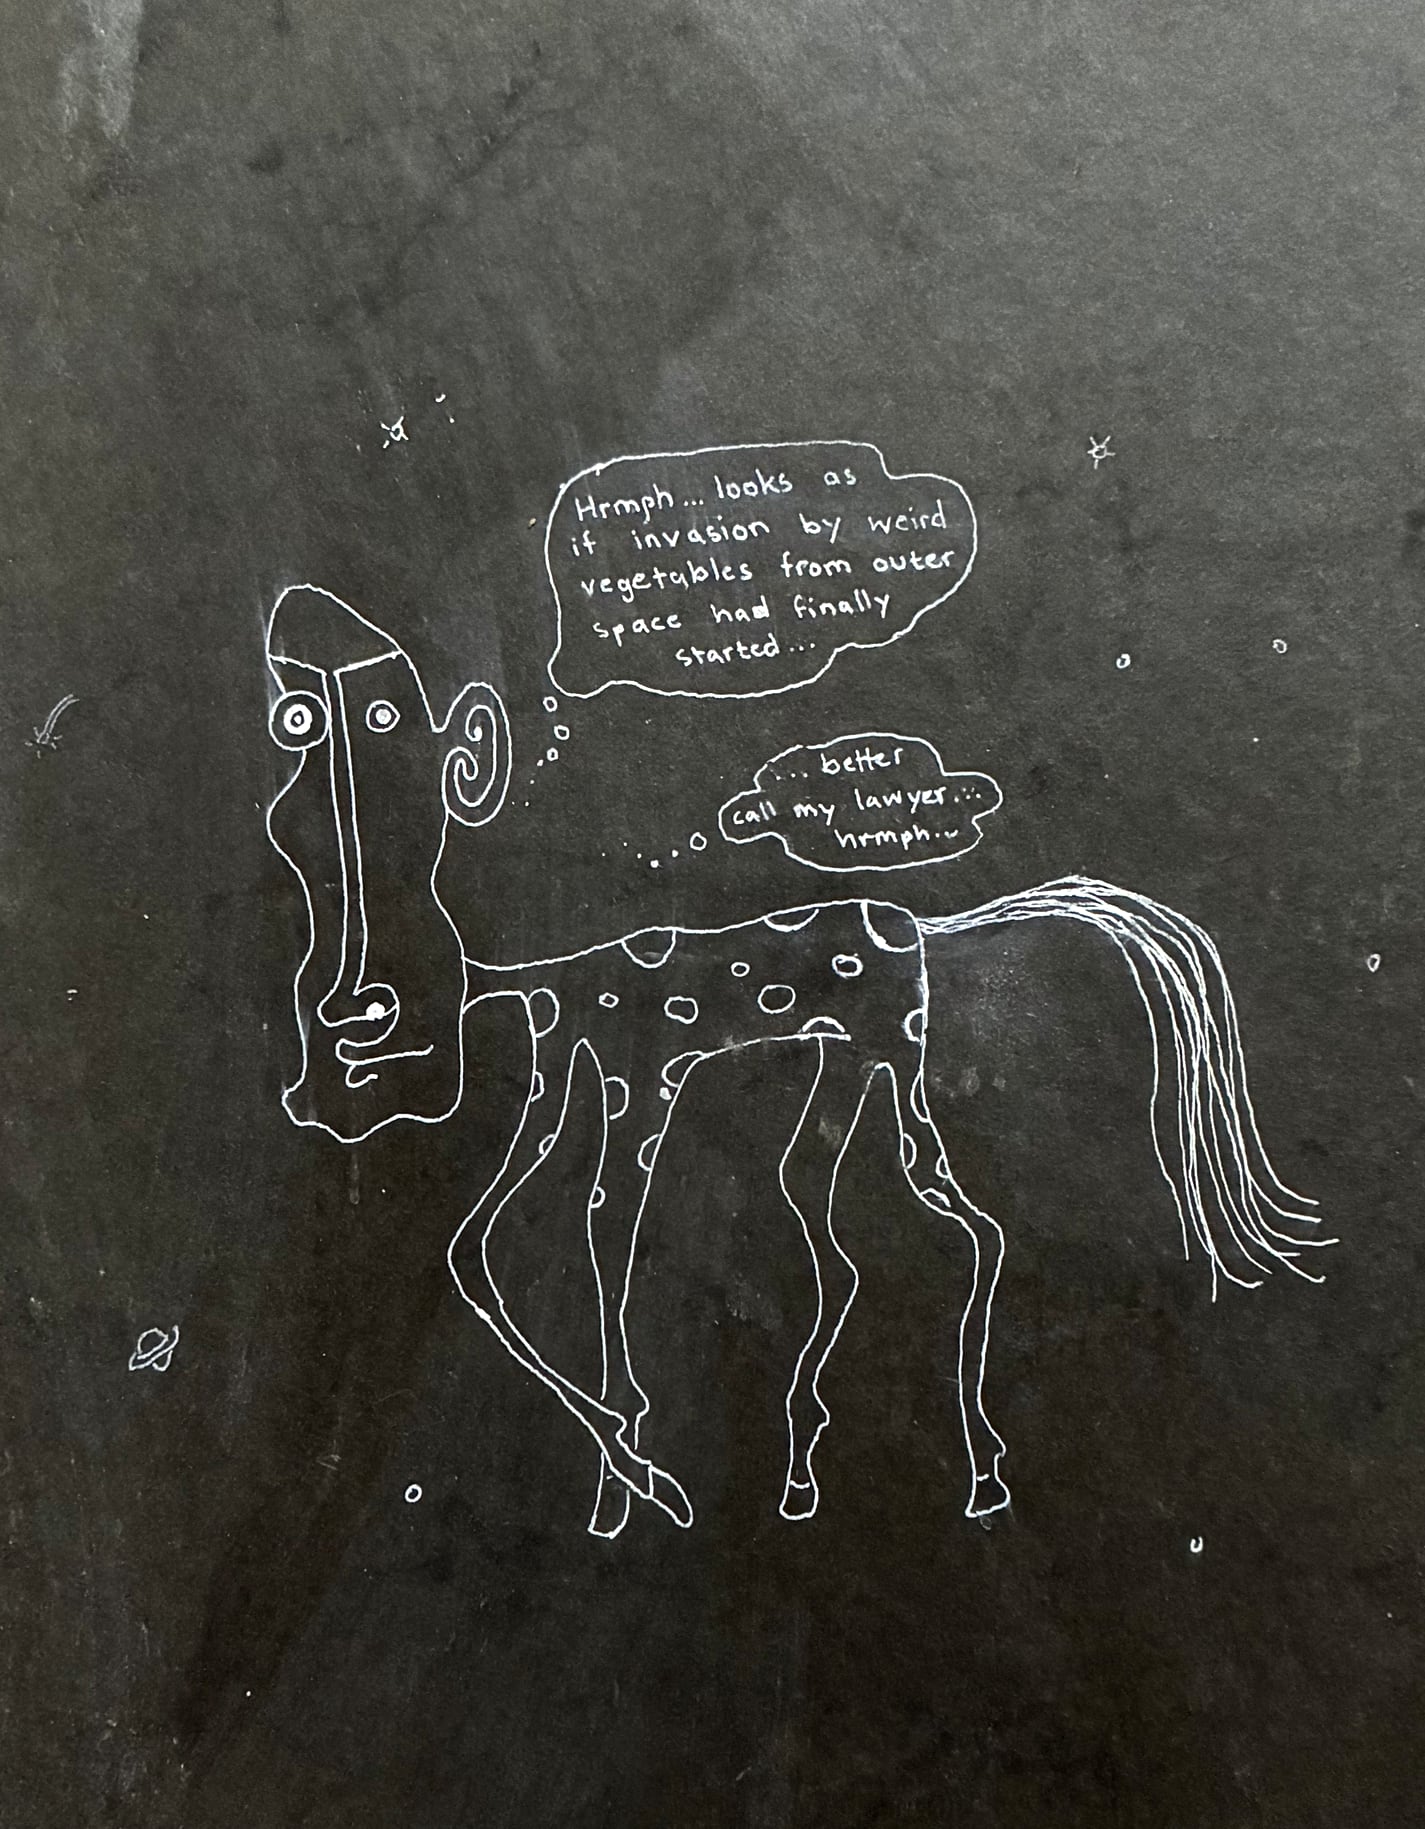 Hrmph... looks as
if invasion by weird
vegetables from outer
space had finally
started...
... better
call my lawyer...
hrmph...